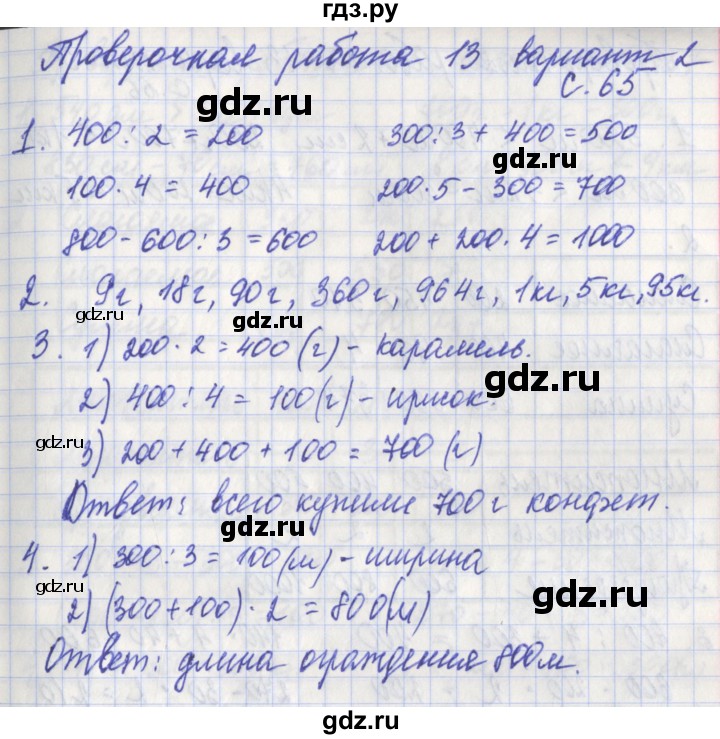 гдз.ру
Проверочная работа 13 вариант 2
с. 65
gdz.ru
1. 400 : 2 = 200 300 : 3 + 400 = 500
gdz.ru
100 · 4 = 400 200 · 5 - 300 = 700
800 - 600 : 3 = 600 200 + 200 · 4 = 1000
gdz.ru
2. 9г, 18г, 90г, 360г, 964г, 1кг, 5кг, 95кг.
gdz.ru gdz.ru
3. 1) 200 · 2 = 400 (г) - карамель.
gdz.ru
2) 400 : 4 = 100 (г) - ирисок.
gdz.ru
3) 200 + 400 + 100 = 700 (г)
gdz.ru
Ответ: всего купили 700 г конфет.
gdz.ru
4. 1) 300 : 3 = 100 (м) - ширина
gdz.ru gdz.ru
2) (300 + 100) · 2 = 800 (м)
gdz.ru
Ответ: длина ограждения 800 м.
gdz.ru
gdz.ru